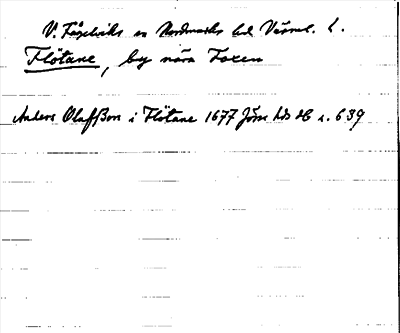 V. Fågelviks sn Nordmarks hd Värml. l.
Flötane, by nära Foxen
Anders Olafsson i Flötane 1677 Jöss hds db s. 639